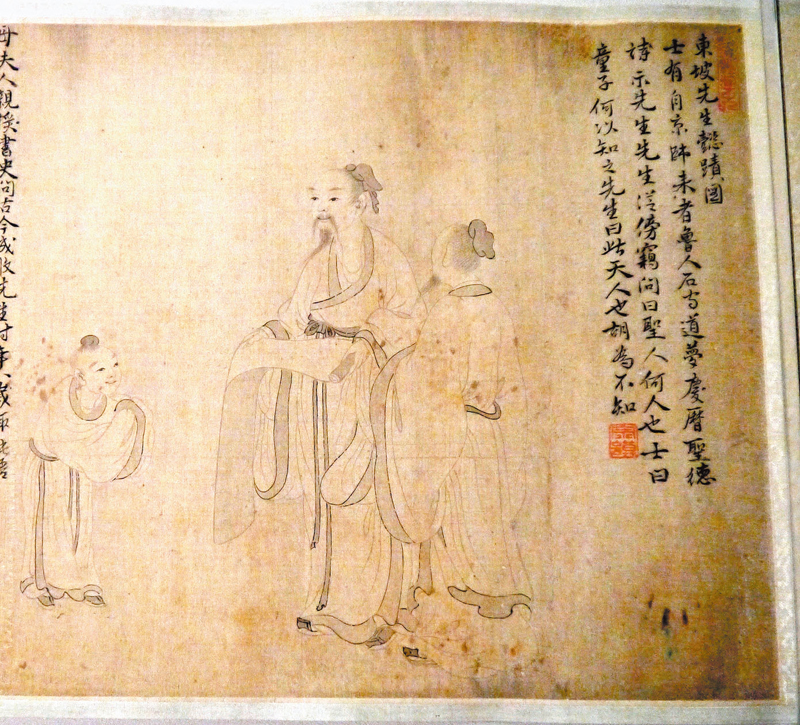 東坡先生懿蹟圖
士有自京師来者魯人石守道夢慶曆聖德
詩示先生先生從傍竊問曰聖人何人也士曰
童子何以知之先生曰此天人也胡為不知
母夫人親授書史問古今成敗先生时年八歲